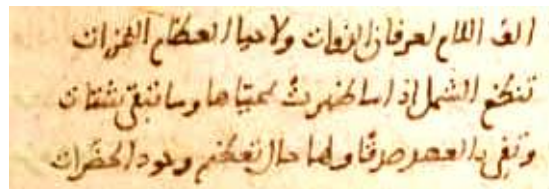 الف اللام لعرفان الذوات ولاحيا العظام النخرات
تنظم الشمل اذا ما ظهرت بمحياها وما تبقى شتات
وتفي بالعهد صدقا ولها حال تعظيم وجود الحضرات